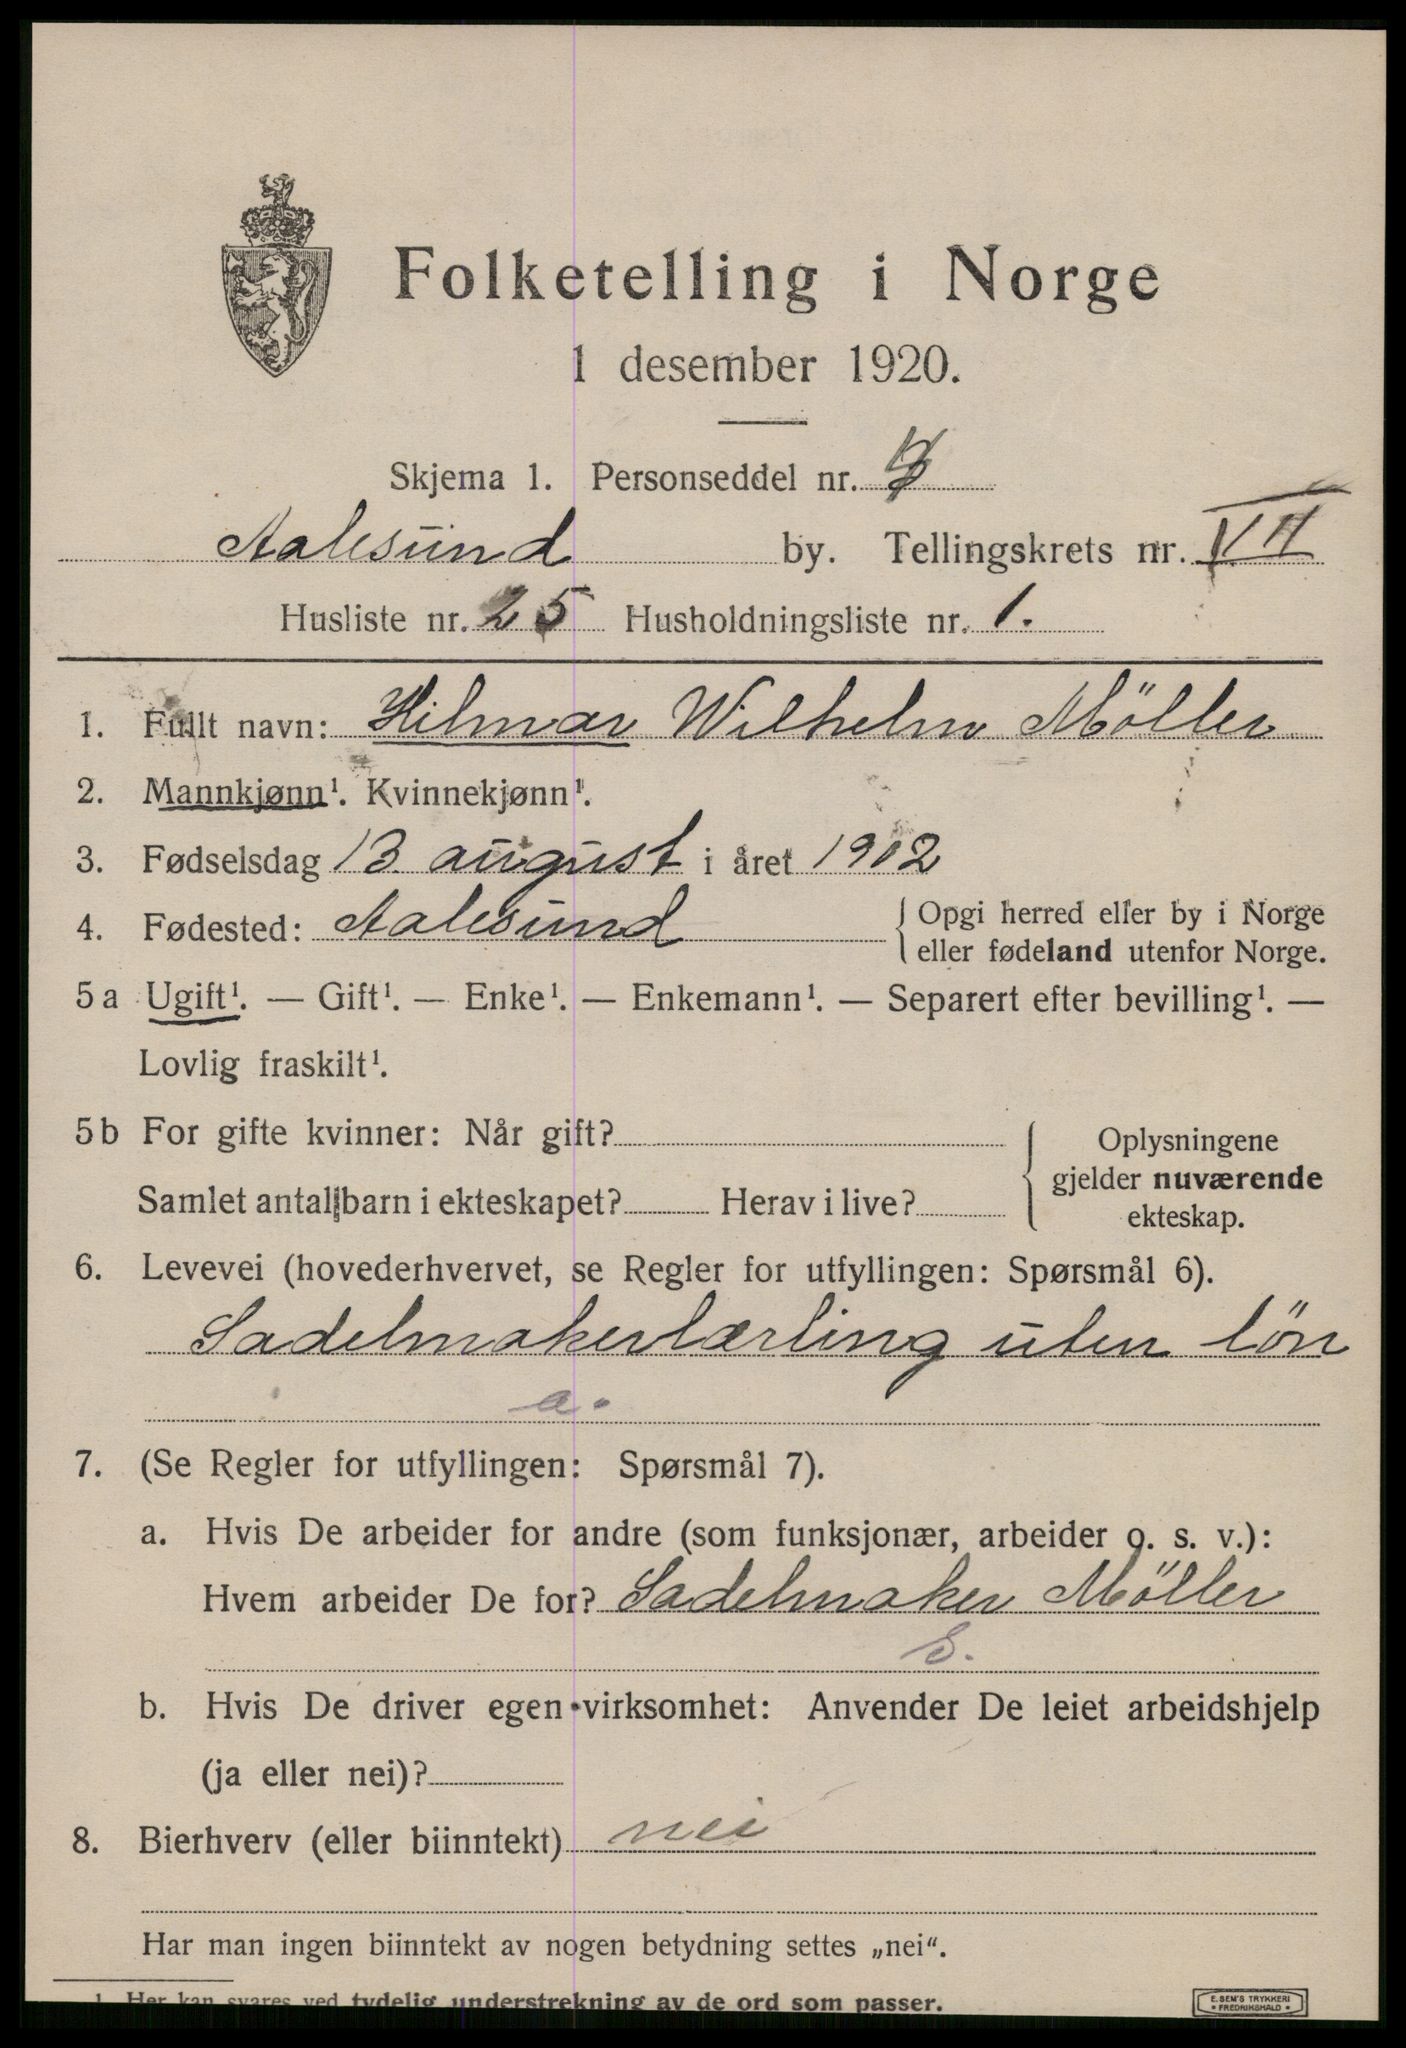 Folketelling i Norge
1 desember 1920.
Skjema 1. Personseddel nr.
Aalesund by. Tellingskrets nr. VII
Husliste nr. 25 Husholdningsliste nr. 1.
1. Fullt navn: Hilmar Wilhelm Möller
2. Mannkjønn¹. Kvinnekjønn¹.
3. Fødselsdag 13 august i året 1902
4. Fødested: Aalesund { Opgi herred eller by i Norge
eller fødeland utenfor Norge.
5a Ugift¹. — Gift¹. — Enke¹. — Enkemann¹. — Separert efter bevilling¹. —
Lovlig fraskilt¹.
5b For gifte kvinner: Når gift?
Samlet antal barn i ekteskapet? Herav i live?
{ Oplysningene
gjelder nuværende
ekteskap.
6. Levevei (hovederhvervet, se Regler for utfyllingen: Spørsmål 6).
Sadelmakerlærling uten lön
a.
7. (Se Regler for utfyllingen: Spørsmål 7).
a. Hvis De arbeider for andre (som funksjonær, arbeider o. s. v.):
Hvem arbeider De for? Sadelmaker Möller
b. Hvis De driver egen virksomhet: Anvender De leiet arbeidshjelp
(ja eller nei)?
8. Bierhverv (eller biinntekt) nei
Har man ingen biinntekt av nogen betydning settes „nei“.
1. Her kan svares ved tydelig understrekning av de ord som passer.
E. SEM'S TRYKKERI
• FREDRIKSHALD •